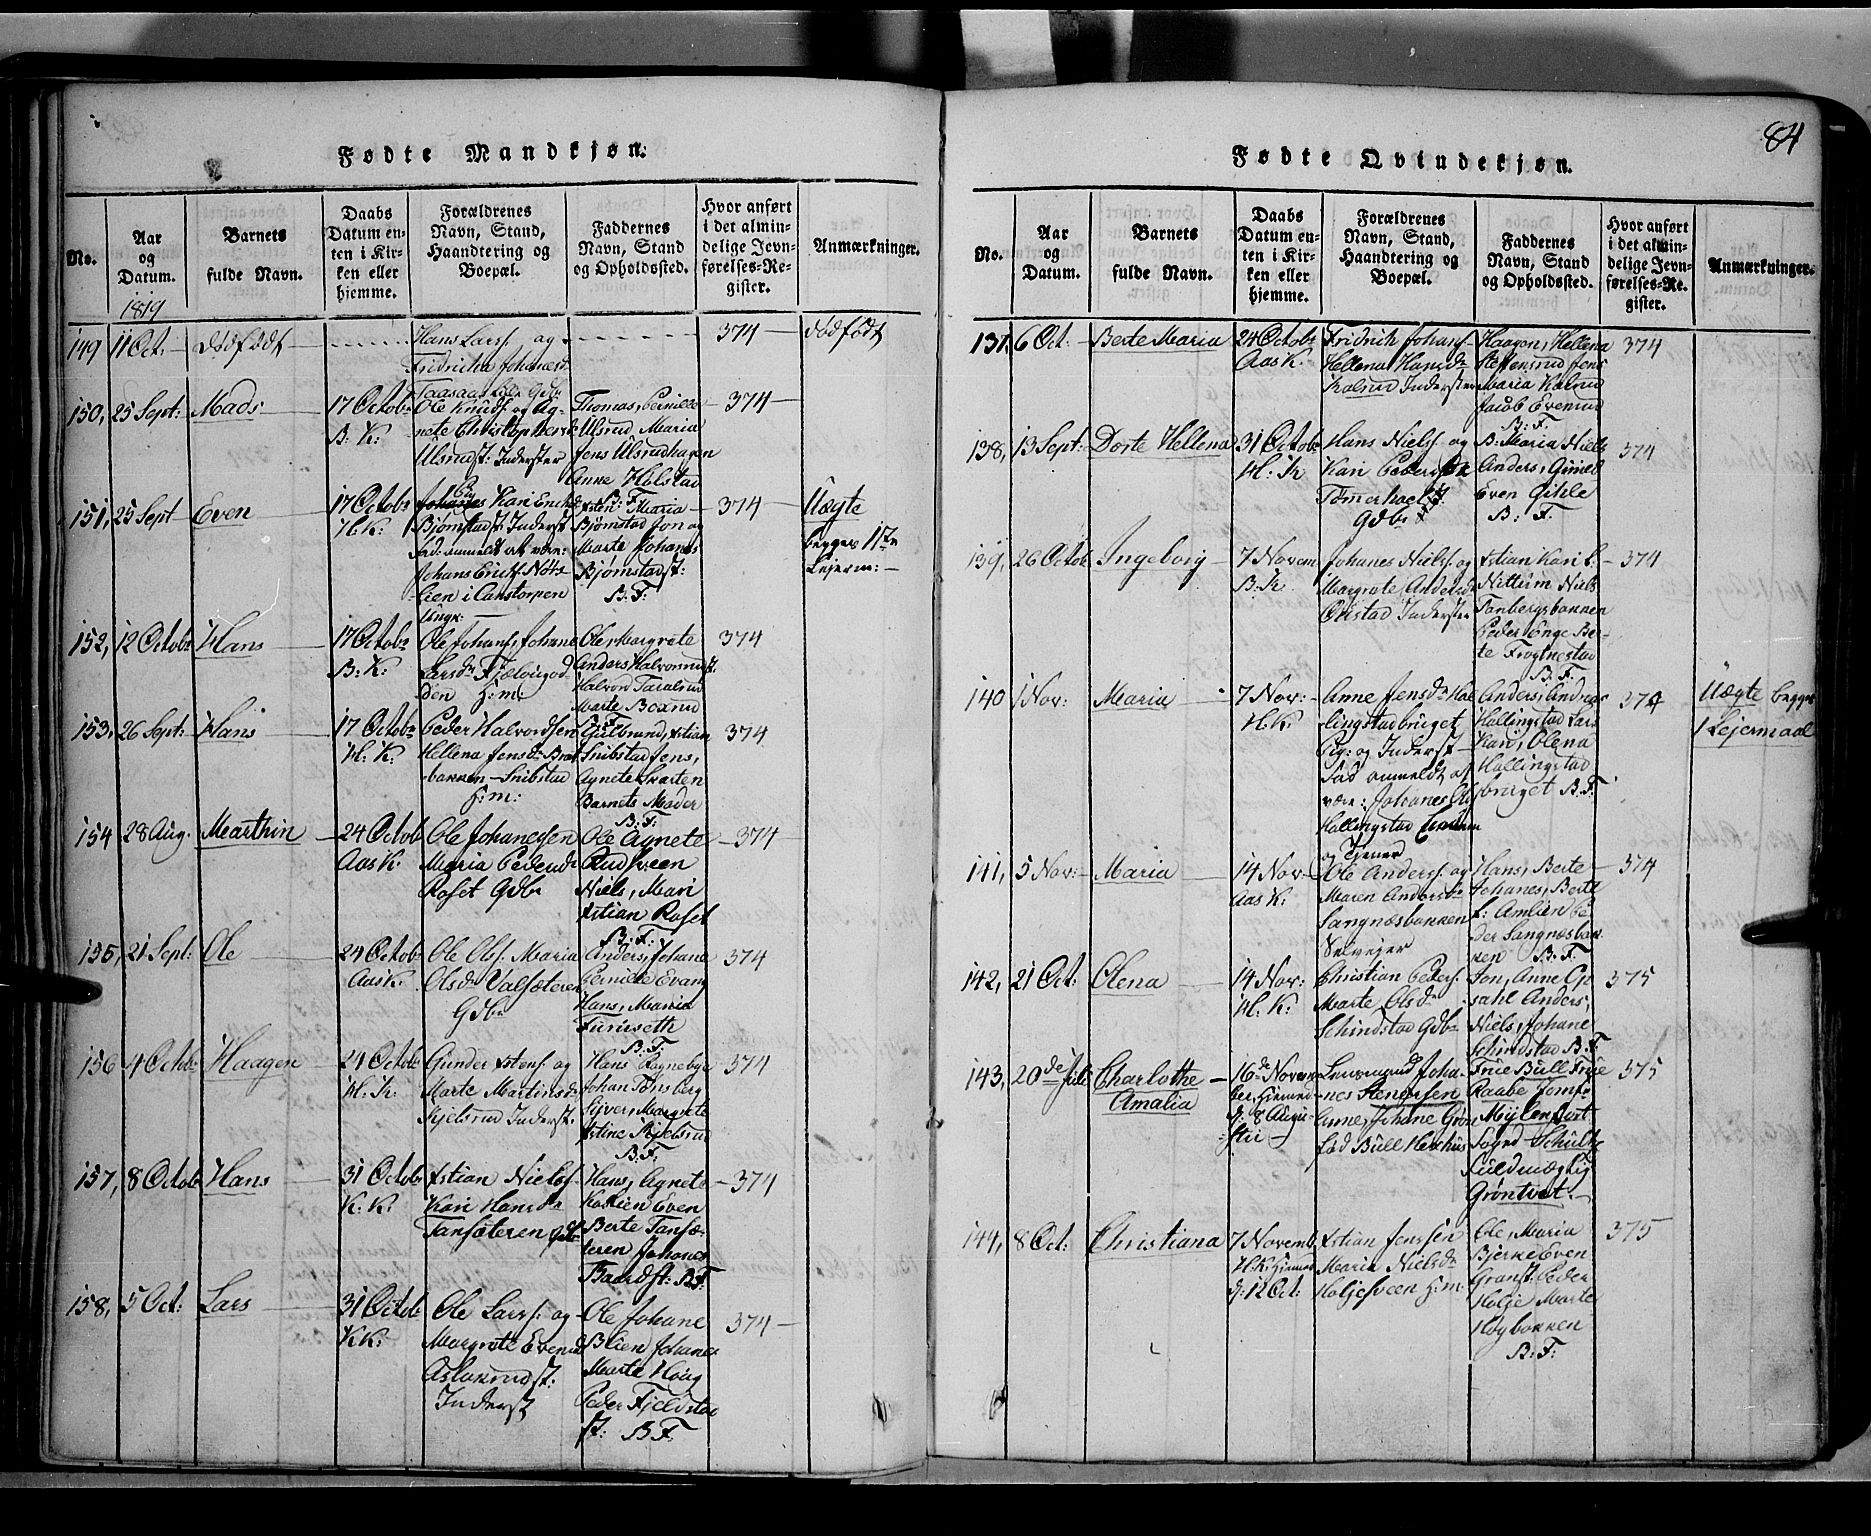 Fødte Mandkjøn.
No.
Aar og Datum.
Barnets fulde Navn.
Daabs Datum enten i Kirken eller hjemme.
Forældrenes Navn, Stand, Haandtering og Boepæl.
Faddernes Navn, Stand og Opholdssted.
Hvor anført i det almindelige Jevnførelses-Register.
Anmærkninger.
1819
149 11 Oct: dødfødt
Hans Larss. og
Fridricha Johanesd.
374
dødfødt
150, 25 Sept: Mads
17 Octobr
B: K:
Ole Knuds. og Ag-
nete Christophersd.
Ulsrudst: Inderster
Thomas, Pernille
Ulsrud Maria
Jens Ulsrudhagen
Anne Holstad
B: F:
374
151, 25 Sept Even
17 Octobr
H: K:
Kari
Bjørnstadst: Inderst
Fad: anmeldt at være:
Johans Ericks.
lien i
Ungk:
Maria
Bjørnstad Jon og
Marte Johanes
Bjørnstadst:
B: F:
374
Uægte
begges 1ste
Lejerm:
152, 12 Octobr Hans
17 Octobr
B: K:
Ole Johans. Johane
Larsdr
H:m:
Ole, Margrete
Anders Halvorsrudst.
Halvor
Marte
B:F:
374
153, 26 Sept: Hans
17 Octobr
H: K:
Peder Halvordsen
Hellena Jensdr
bakken - Snibstad
H:m:
Gulbrand, Kstian
Snibstad Jens,
Agnete
Barnets Moder
B: F:
374
154 28 Aug. Marthin
24 Octob
Aas K:
Ole Johanesen
Maria Pedersdr
Roset Gdbr
Ole Agnete
Rudsveen
Niels, Mari
Kstian Roset
B: F:
374
155, 21 Sept: Ole
24 Octob
Aas K:
Ole Ols. Maria
Olsdr Valsæteren
Gdbr
Anders, Johana
Pernille Evans
Hans, Maria
Furuseth
B: F:
374
156 4 Octobr Haagen
24 Octobr
H: K:
Gunder Kstens. og
Marte Martinsd.
Kjelsrud Inderst.
Hans Rognebye
Johan Tønsberg
Siver, Margrete
Kstine Kjelsrud
B: F:
374
157, 8 Octobr Hans
31 Octobr
K: K:
Kstian Niels.
Kari Hansdr
Tansæteren Gdbr
Hans, Agnete
Kaslien Even
Berte Tansæ-
teren Johanes
Baardst: B:F:
374
158, 5 Oct: Lars
31 Octob
K K:
Ole Larss. og
Margrete Evensd
Aslaksrudst:
Inderst
Ole Johane
Blien Johanes
Marte Houg
Peder Fjeldstad
st: B F:
374
84
Fødte Qvindekjøn.
No.
Aar og Datum.
Barnets fulde Navn.
Daabs Datum enten i Kirken eller hjemme.
Forældrenes Navn, Stand, Haandtering og Boepæl.
Faddernes Navn, Stand og Opholdssted.
Hvor anført i det almindelige Jevnførelses-Register.
Anmærkninger.
137, 6 Oct: Berte Maria
24 Octobr
Aas K:
Fridrich Johans.
Hellena Hansdr
Kalrud Inderster
Haagen, Hellena
Steffensrud Jens
Maria Kalrud
Jacob Evensrud
B: F:
374
138, 13 Sept: Dorte Hellena
31 Octobr
H: K
Hans Niels. og
Kari Pedersdr
Gdbr
B. Maria Niels
Anders, Guneld
Even Gihle
B: F.
374
139, 26 Octob Ingeborg
7 Novem
B: K
Johanes Niels. og
Margrete Andersd.
Inderster
Kstian Kari L:
Nettum Niels
Tanbergsbakken
Peder Enge Ber-
te Frognestad
B. F.
374
140 1 Nov: Maria
7 Nov:
H. K:
Anne Jensdr Hal-
lingstadbruget
Pig: og Inderst
Fad anmeldt at
være: Johanes
Hallingstad
og Tjener
Anders, Andrea
Hallingstad Lars
Kari, Olena
Hallingstad
bruget B. F:
374
Uægte begges
1 Lejermaal
141, 5 Nov: Maria
14 Nov:
Aas K:
Ole Anders. og
Maren Andersdr
Sangnæsbakken
Selvejer
Hans, Berte
Johanes, Berte
L: Amlien Pe-
der Sangnæsbak
ken B: F:
374
142, 21 Oct: Olena
14 Nov:
H. K:
Christian Peders.
Marte Olsdr
Schindstad Gdbr
Jon, Anne Op-
sahl Anders,
Niels, Johane
Schindstad B: F:
375
143, 20de Juli Charlothe
Amalia
16de Novem
ber, Hjemed
d: 8 Augu-
stii
Lensmand Joha-
nes Stenersen
Anne, Johane Grøn
Lød Büll Hexhus
Frue Büll Frue
Raabe Jomf.
Mÿlenport
Soged Schultz
Fuldmægtig
Grøntvet.
375
144, 8 Oct: Christiana
7 Novemb
H.K: Hjemed
d: 12 Oct:
Kstian Jenssen
Maria Nielsdr
Holjesveen H:m:
Ole, Maria
Bjerke Even
Granst. Peder
Holje Marte
Høgbakken
B: F:
375